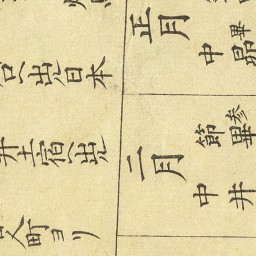 正月
中 畢昴
出日本
二月
節 参畢
中 井
井土宿出
町ヨリ